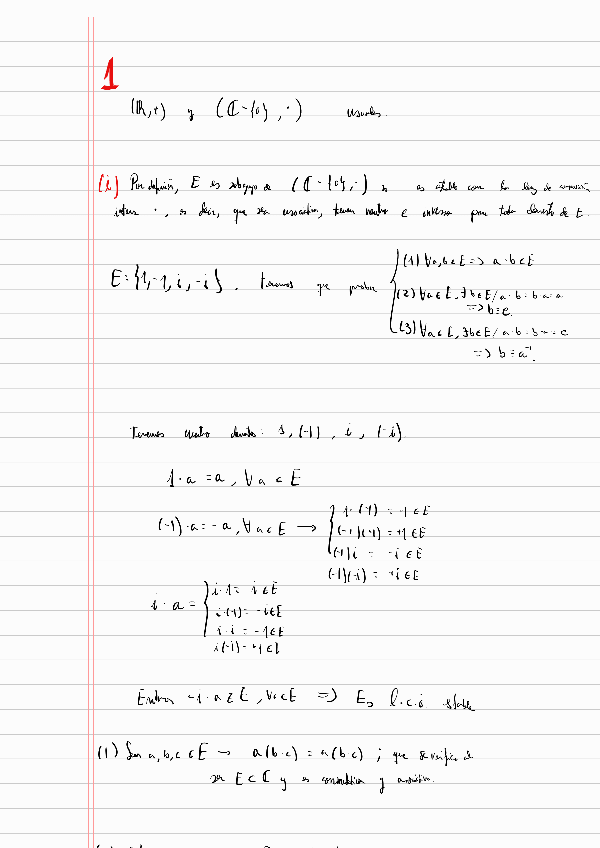 1
(ℝ,+) y (ℂ-{0}, ·) usuales.
(i) Por definición, E es subgrupo de (ℂ-{0}, ·) si es estable con la ley de composición
interna ·, es decir, que sea asociativa, tener neutro e inverso para todo elemento de E.
E={1,-1,i,-i}, tenemos que probar
(1) ∀a,b∈E => a·b∈E
(2) ∀a∈E, ∃b∈E/a·b=b·a=a
=> b=e.
(3) ∀a∈E, ∃b∈E/a·b=b·a=e
=> b=a⁻¹.
Tenemos cuatro elementos: 1, (-1), i, (-i)
1·a=a, ∀a∈E
(-1)·a=-a, ∀a∈E →
1·(-1) = -1∈E
(-1)(-1) = +1∈E
(-1)i = -i∈E
(-1)(-i) = +i∈E
i·a=
i·1= i∈E
i·(-1)=-i∈E
i·i = -1∈E
i(-i)=+1∈E
Entonces -1·a∈E, ∀a∈E => Es l.c.i estable
(1) Sean a,b,c∈E → a(b·c) = a(b·c) ; que se verifica de
ser E⊂ℂ y es conmutativa y asociativa.